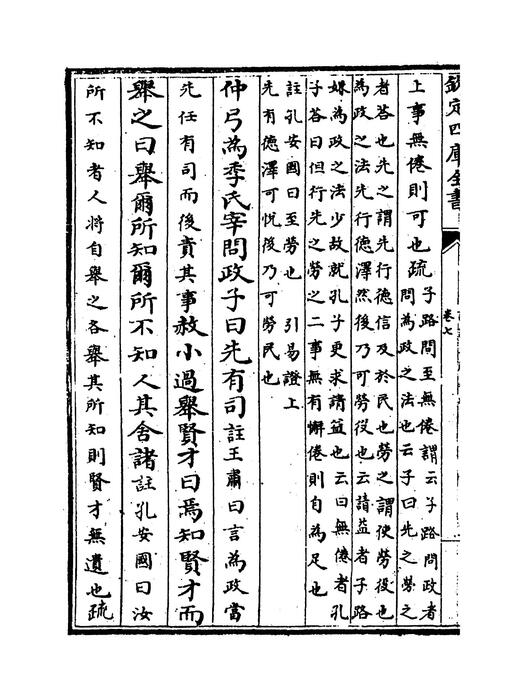 欽定四庫全書
卷七
上事無倦則可也疏
子路問至無倦謂云子路問政者
問為政之法也云子曰先之勞之
者荅也先之謂先行德信及於民也勞之謂使勞役也
為政之法先行德澤然後乃可勞役也云請益者子路
嫌為政之法少故就孔子更求請益也云曰無倦者孔
子荅曰但行先之勞之二事無有懈倦則自為足也
註孔安國曰至勞也 引易證上
先有德澤可悅後乃可勞民也
仲弓為季氏宰問政子曰先有司註王肅曰言為政當
先任有司而後責其事赦小過舉賢才曰焉知賢才而
舉之曰舉爾所知爾所不知人其舍諸註孔安國曰汝
所不知者人將自舉之各舉其所知則賢才無遺也疏